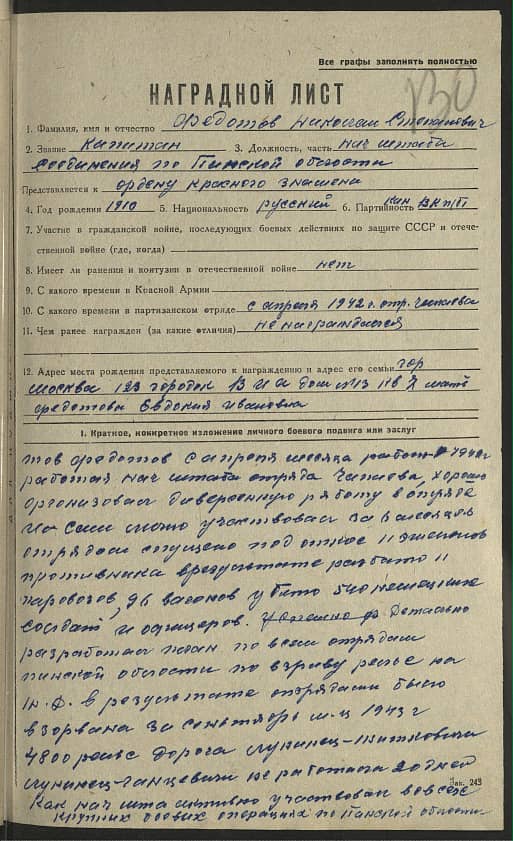 Все графы заполнять полностью
130
НАГРАДНОЙ ЛИСТ
1. Фамилия, имя и отчество Федотов Николай Степанович
2. Звание Капитан 3. Должность, часть нач штаба
Соединения по Пинской области
Представляется к ордену Красного знамени
4. Год рождения 1910 5. Национальность русский 6. Партийность кан ВКП/б/
7. Участие в гражданской войне, последующих боевых действиях по защите СССР и отече-
ственной войне (где, когда)
8. Имеет ли ранения и контузии в отечественной войне нет
9. С какого времени в Красной Армии
10. С какого времени в партизанском отряде с апреля 1942 г. отр. Чапаева
11. Чем ранее награжден (за какие отличия) не награждался
12. Адрес места рождения представляемого к награждению и адрес его семьи гор
Москва 123 городок дом №13 кв 7 мать
Федотова Евдокия Ивановна
I. Краткое, конкретное изложение личного боевого подвига или заслуг
тов Федотов с апреля месяца
работая нач штаба отряда Чапаева, хорошо
организовал диверсионную работу в отряде
и сам лично участвовал за 8 месяцев
отрядом спущено под откос 11 эшелонов
противника врезультате разбито 11
паровозов, 96 вагонов убито 540 немецких
солдат и офицеров. Детально
разработал план по всем отрядам
пинской области по взрыву рельс на
ж.д. в результате отрядами было
взорвана за сентябрь м-ц 1943 г
4800 рельс дорога лунинец-житковичи
лунинец-ганцевичи не работала 20 дней
Зак. 243
Как нач штаба активно участвовал во всех
крупных боевых операциях по Пинской области